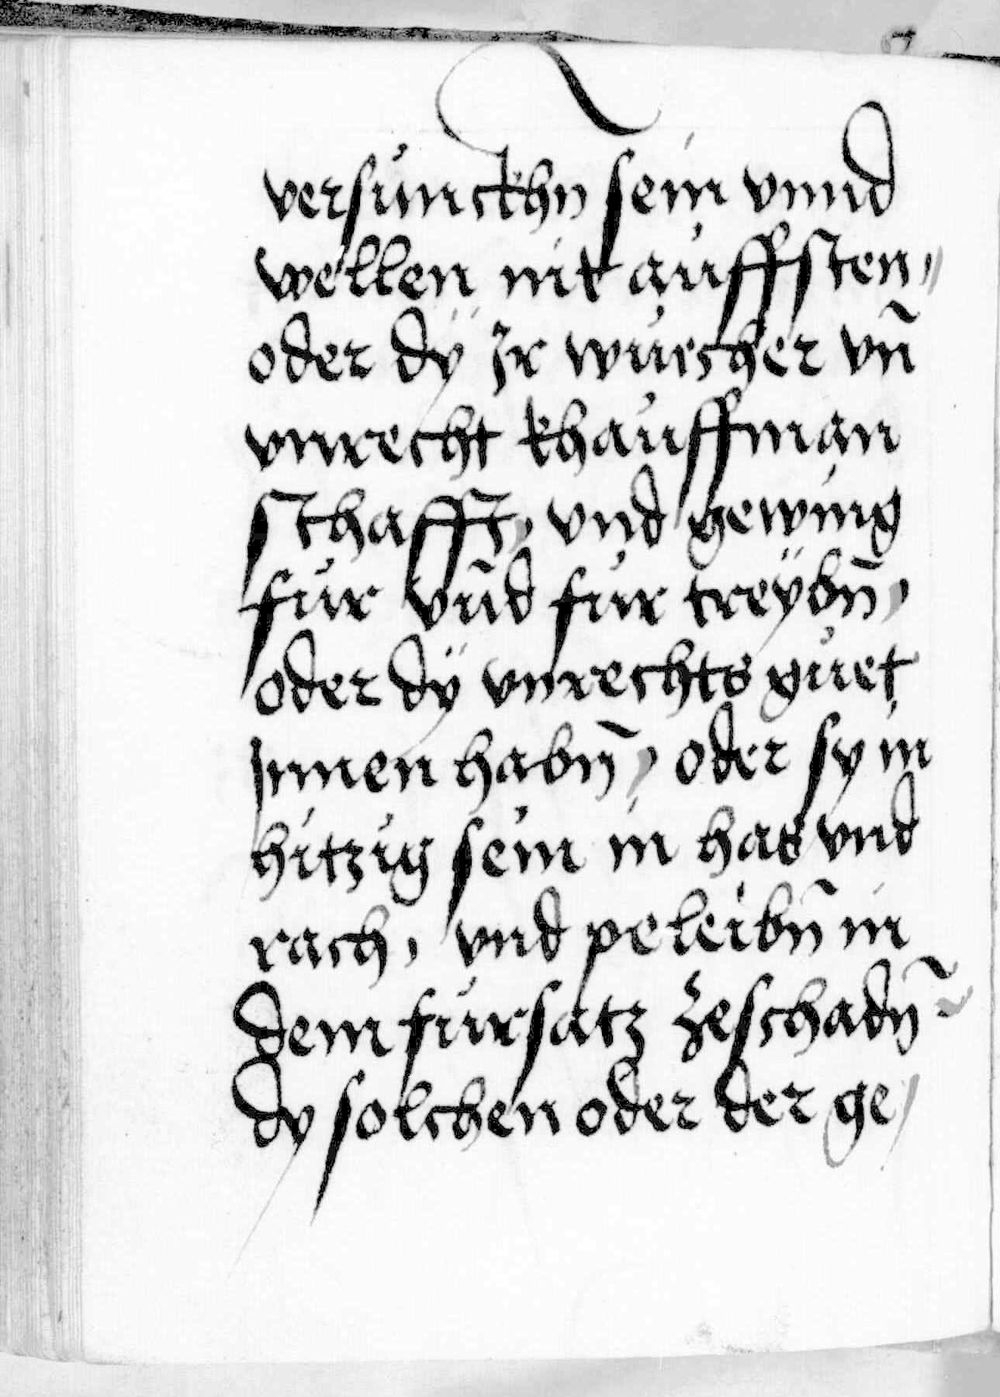 versunckhn sein vnnd
wellen nit auffsten,
oder dÿ Ir wuecher vn̄
vnrecht khauffman
schafft, vnd gewing
fur vnd fur treÿbn̄,
oder dÿ vnrechts guet
Innen habn̄, oder sy in
hitzig sein in has vnd
rach, vnd peleibn̄ in
dem fursatz zeschadn̄
dy solchen oder der ge/